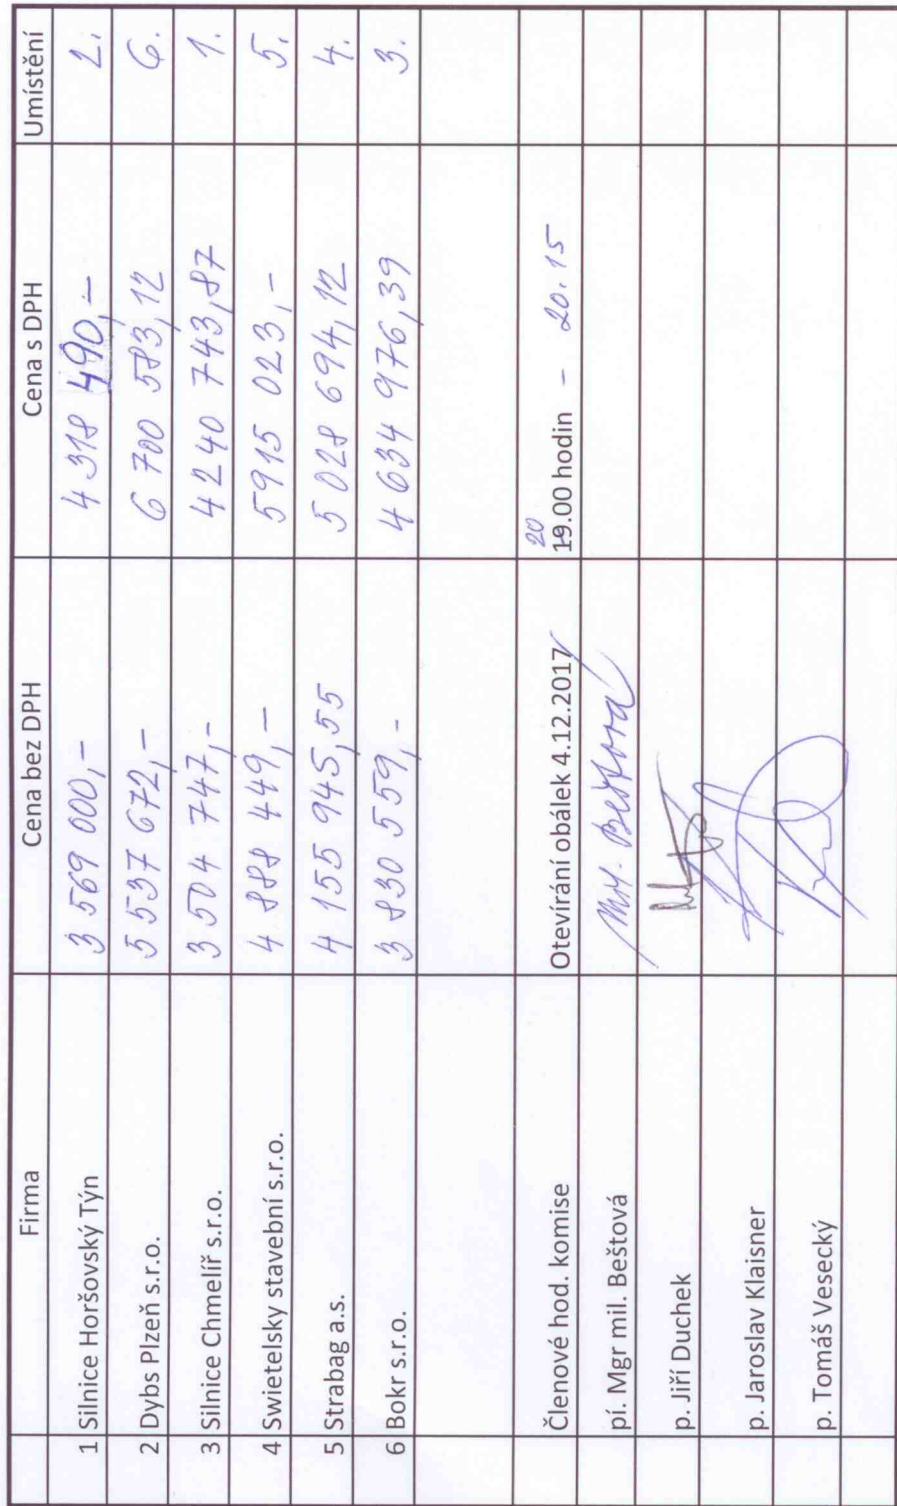 Firma Cena bez DPH Cena s DPH Umístění
1 Silnice Horšovský Týn 3 569 000,- 4 318 490,- 2.
2 Dybs Plzeň s.r.o. 5 537 672,- 6 700 583,12 6.
3 Silnice Chmelíř s.r.o. 3 504 747,- 4 240 743,87 1.
4 Swietelsky stavební s.r.o. 4 888 449,- 5915 023,- 5.
5 Strabag a.s. 4 155 945,55 5 028 694,12 4.
6 Bokr s.r.o. 3 830 559,- 4 634 976,39 3.
20
Členové hod. komise Otevírání obálek 4.12.2017 19.00 hodin - 20.15
pí. Mgr mil. Beštová Beštová
p. Jiří Duchek
p. Jaroslav Klaisner
p. Tomáš Vesecký